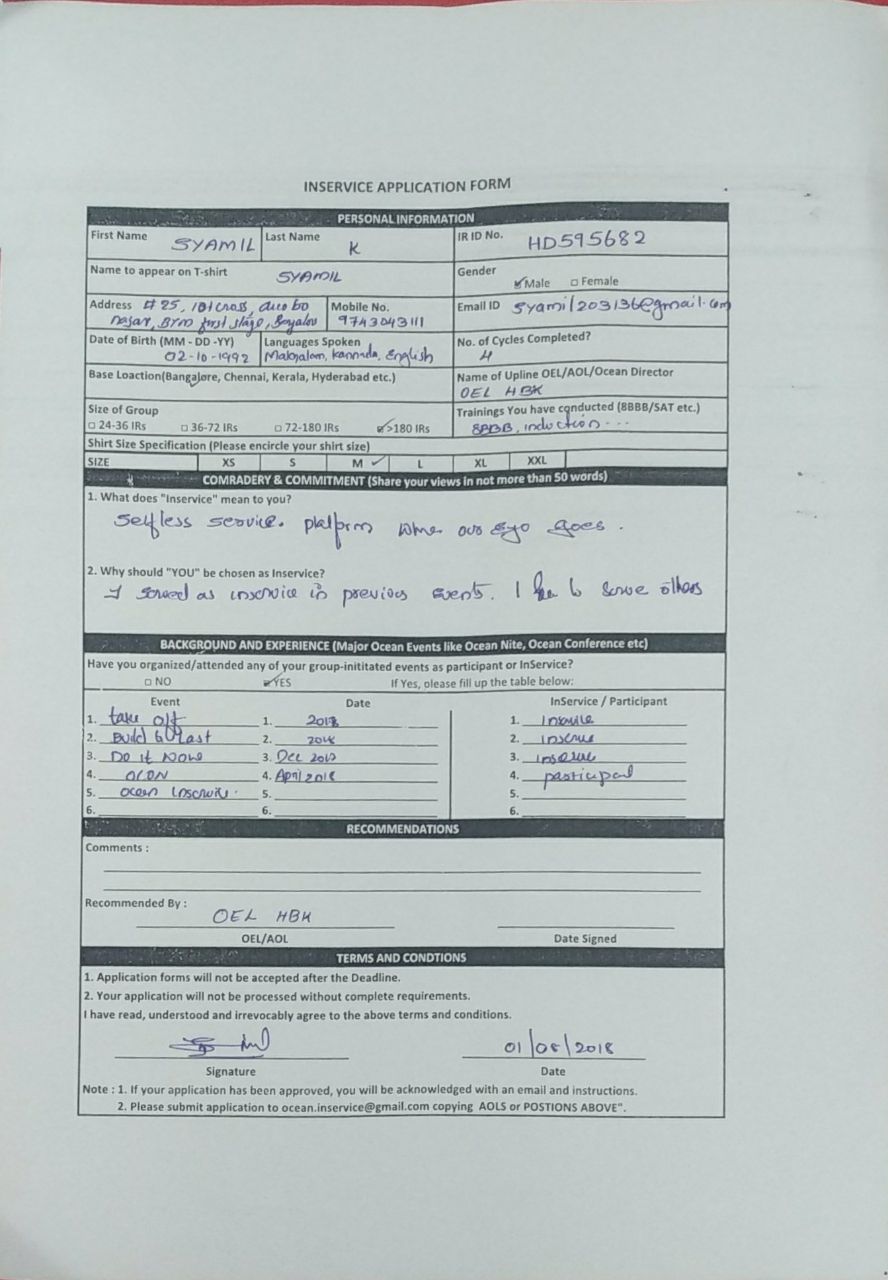 INSERVICE APPLICATION FORM
PERSONAL INFORMATION
First Name SYAMIL Last Name K IR ID No. HD595682
Name to appear on T-shirt SYAMIL Gender
Male Female
Address # 25, cross, Mobile No. Email ID syamil203136@gmail.com
nagar, BTM first stage, 9743043111
Date of Birth (MM - DD -YY) Languages Spoken No. of Cycles Completed?
02-10-1992 Malayalam, kannada, English 4
Base Loaction(Bangalore, Chennai, Kerala, Hyderabad etc.) Name of Upline OEL/AOL/Ocean Director
OEL HBK
Size of Group Trainings You have conducted (8BBB/SAT etc.)
24-36 IRs 36-72 IRs 72-180 IRs >180 IRs 8BBB, induction...
Shirt Size Specification (Please encircle your shirt size)
SIZE XS S M L XL XXL
COMRADERY & COMMITMENT (Share your views in not more than 50 words)
1. What does "Inservice" mean to you?
Selfless service. platform where our ego goes.
2. Why should "YOU" be chosen as Inservice?
I served as inservice in previous events. I to serve others
BACKGROUND AND EXPERIENCE (Major Ocean Events like Ocean Nite, Ocean Conference etc)
Have you organized/attended any of your group-inititated events as participant or InService?
NO YES If Yes, please fill up the table below:
Event Date InService / Participant
1. take off 1. 2018 1.
2. Build to last 2. 2018 2.
3. Do it Now 3. Dec 2017 3.
4. OCON 4. April 2018 4.
5. ocean Inservice. 5. 5.
6. 6. 6.
RECOMMENDATIONS
Comments :
Recommended By :
OEL HBK
OEL/AOL Date Signed
TERMS AND CONDTIONS
1. Application forms will not be accepted after the Deadline.
2. Your application will not be processed without complete requirements.
I have read, understood and irrevocably agree to the above terms and conditions.
01/08/2018
Signature Date
Note : 1. If your application has been approved, you will be acknowledged with an email and instructions.
2. Please submit application to ocean.inservice@gmail.com copying AOLS or POSTIONS ABOVE".